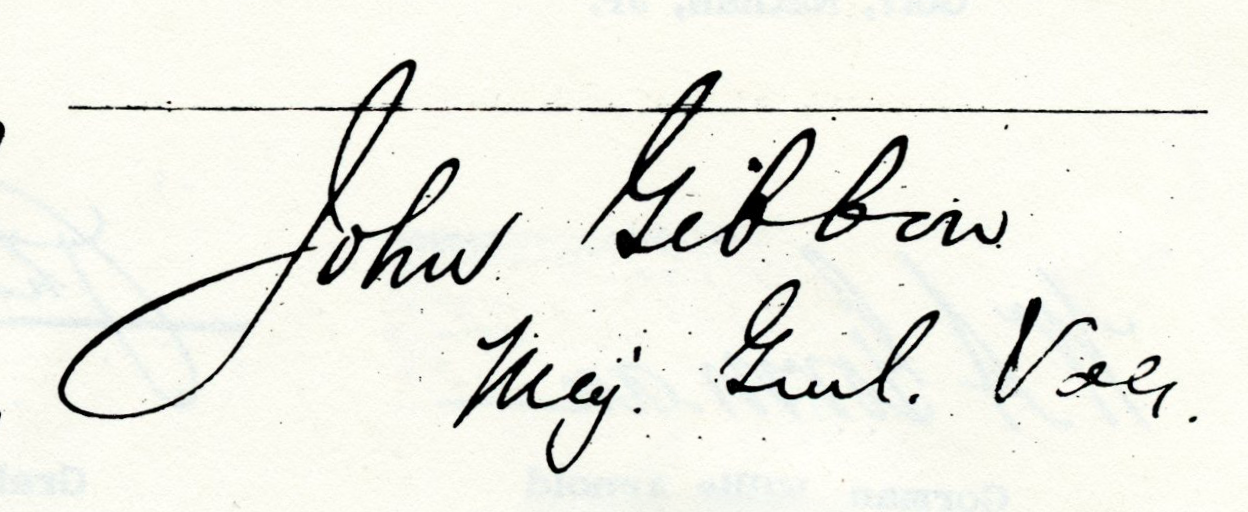 John Gibbon
Maj. Genl. Vols.